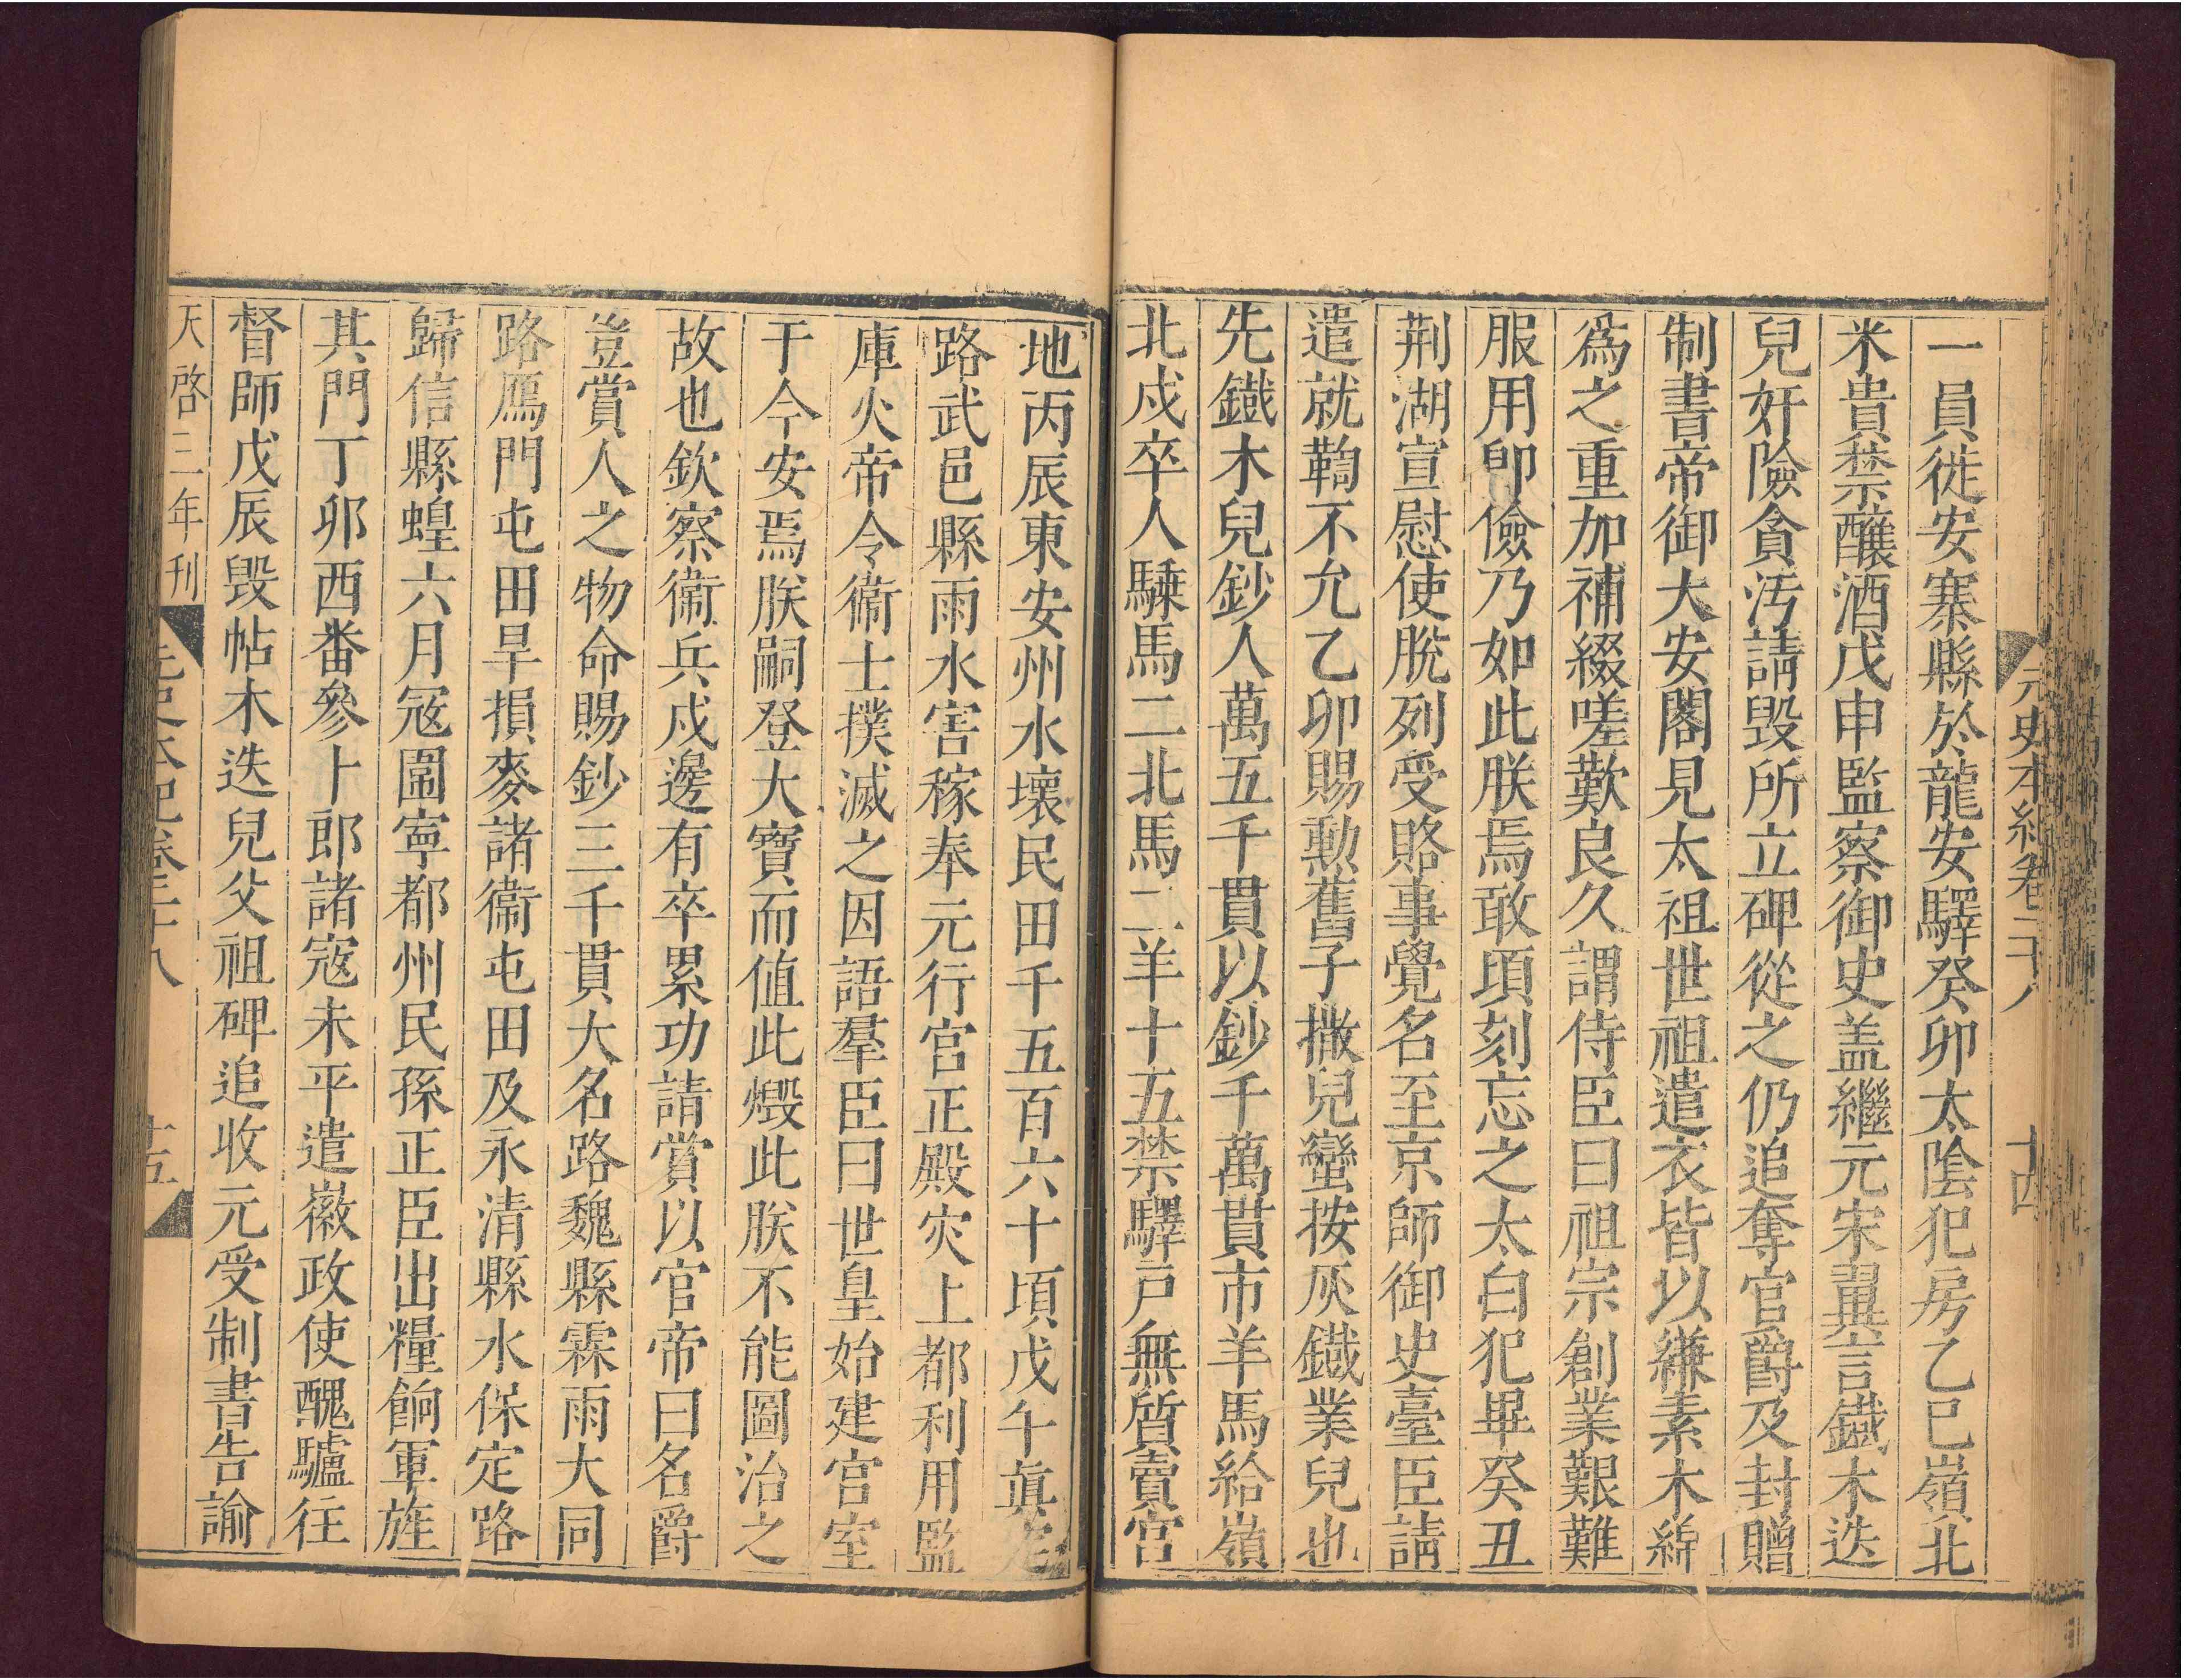 元史本紀卷二十八 十四
一員徙安寨縣於龍安驛癸卯太陰犯房乙巳嶺北
米貴禁釀酒戊申監察御史盖繼元宋翼言鐵木迭
兒奸險貪汚請毀所立碑從之仍追奪官爵及封贈
制書帝御大安閣見太祖世祖遣衣皆以縑素木綿
爲之重加補綴嗟歎良久謂侍臣曰祖宗創業艱難
服用卽儉乃如此朕焉敢頃刻忘之太白犯畢癸丑
荆湖宣慰使脫列受賂事覺名至京師御史臺臣請
遣就鞫不允乙卯賜勲舊子撒兒蠻按灰鐵業兒也
先鐵木兒鈔人萬五千貫以鈔千萬貫市羊馬給嶺
北戍卒人騬馬二北馬二羊十五禁驛戸無質賣官
地丙辰東安州水壞民田千五百六十頃戊午眞定
路武邑縣雨水害稼奉元行宫正殿灾上都利用監
庫火帝令衞士撲滅之因語羣臣曰世皇始建宫室
于今安焉朕嗣登大寶而值此燬此朕不能圖治之
故也欽察衞兵戍邊有卒累功請賞以官帝曰名爵
豈賞人之物命賜鈔三千貫大名路魏縣霖雨大同
路鴈門屯田旱損麥諸衞屯田及永清縣水保定路
歸信縣蝗六月寇圍寧都州民孫正臣出糧餉軍旌
其門丁卯西番參卜郎諸寇未平遣徽政使醜驢往
督師戊辰毀帖木迭兒父祖碑追收元受制書告諭
天啓三年刊 元史本紀卷二十八 十五